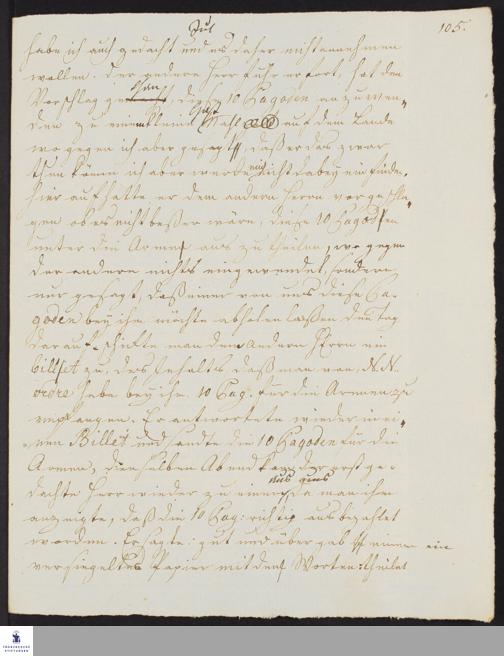 105.
Zus
habe ich auch gedacht und es daher nicht annehmen
wollen. Der andere Herr fuhr er fort, hat den
Vorschlag gethan, diese 10 Pagoden anzuwen-
den zu einem kleinen auf dem Lande
wogegen ich aber gesagt, daß er das zwar
thun könne ich aber werde mich nicht dabey einfinden.
Hierauf hatte er dem andern Herrn vorgeschla-
gen ob es nicht beßer wäre, diese 10 Pagoden
unter die Armen aus zu theilen, wogegen
der andere nichts eingewendet, sondern
nur gesagt, daß einer von uns diese Pa-
goden bey ihm möchte abholen laßen den Tag
darauf schickte man dem andern Herrn ein
billet zu, des Inhalts daß man von N. N.
ordre habe bey ihm 10 Pag: für die Armen zu
empfangen. Er antwortete wieder in ei-
nem Billet und sandte die 10 Pagoden für die
Armen, denselben Abend kam der erst ge-
dachte Herr wieder zu einem aus uns da man ihm
anzeigte, daß die 10 Pag: richtig ausbezahlt
worden. Er sagte: gut und übergab einem ein
versiegeltes Papier mit den Worten: theilet
FRANCKESCHE
STIFTUNGEN